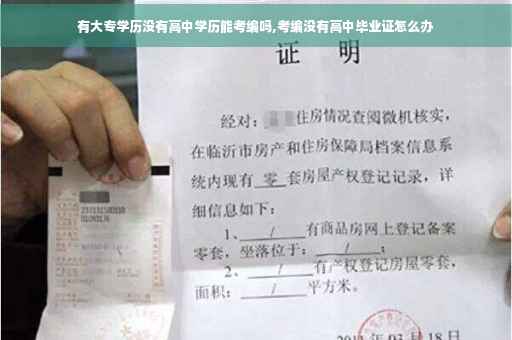 有大专学历没有高中学历能考编吗,考编没有高中毕业证怎么办
证 明
经对: 住房情况查阅微机核实,
在临沂市房产和住房保障局档案信息系
统内现有 零 套房屋产权登记记录, 详
细信息如下:
1、 / 有商品房网上登记备案
零套, 坐落位于: / ;
2、 / 有产权登记房屋零套,
面积: / 平方米。